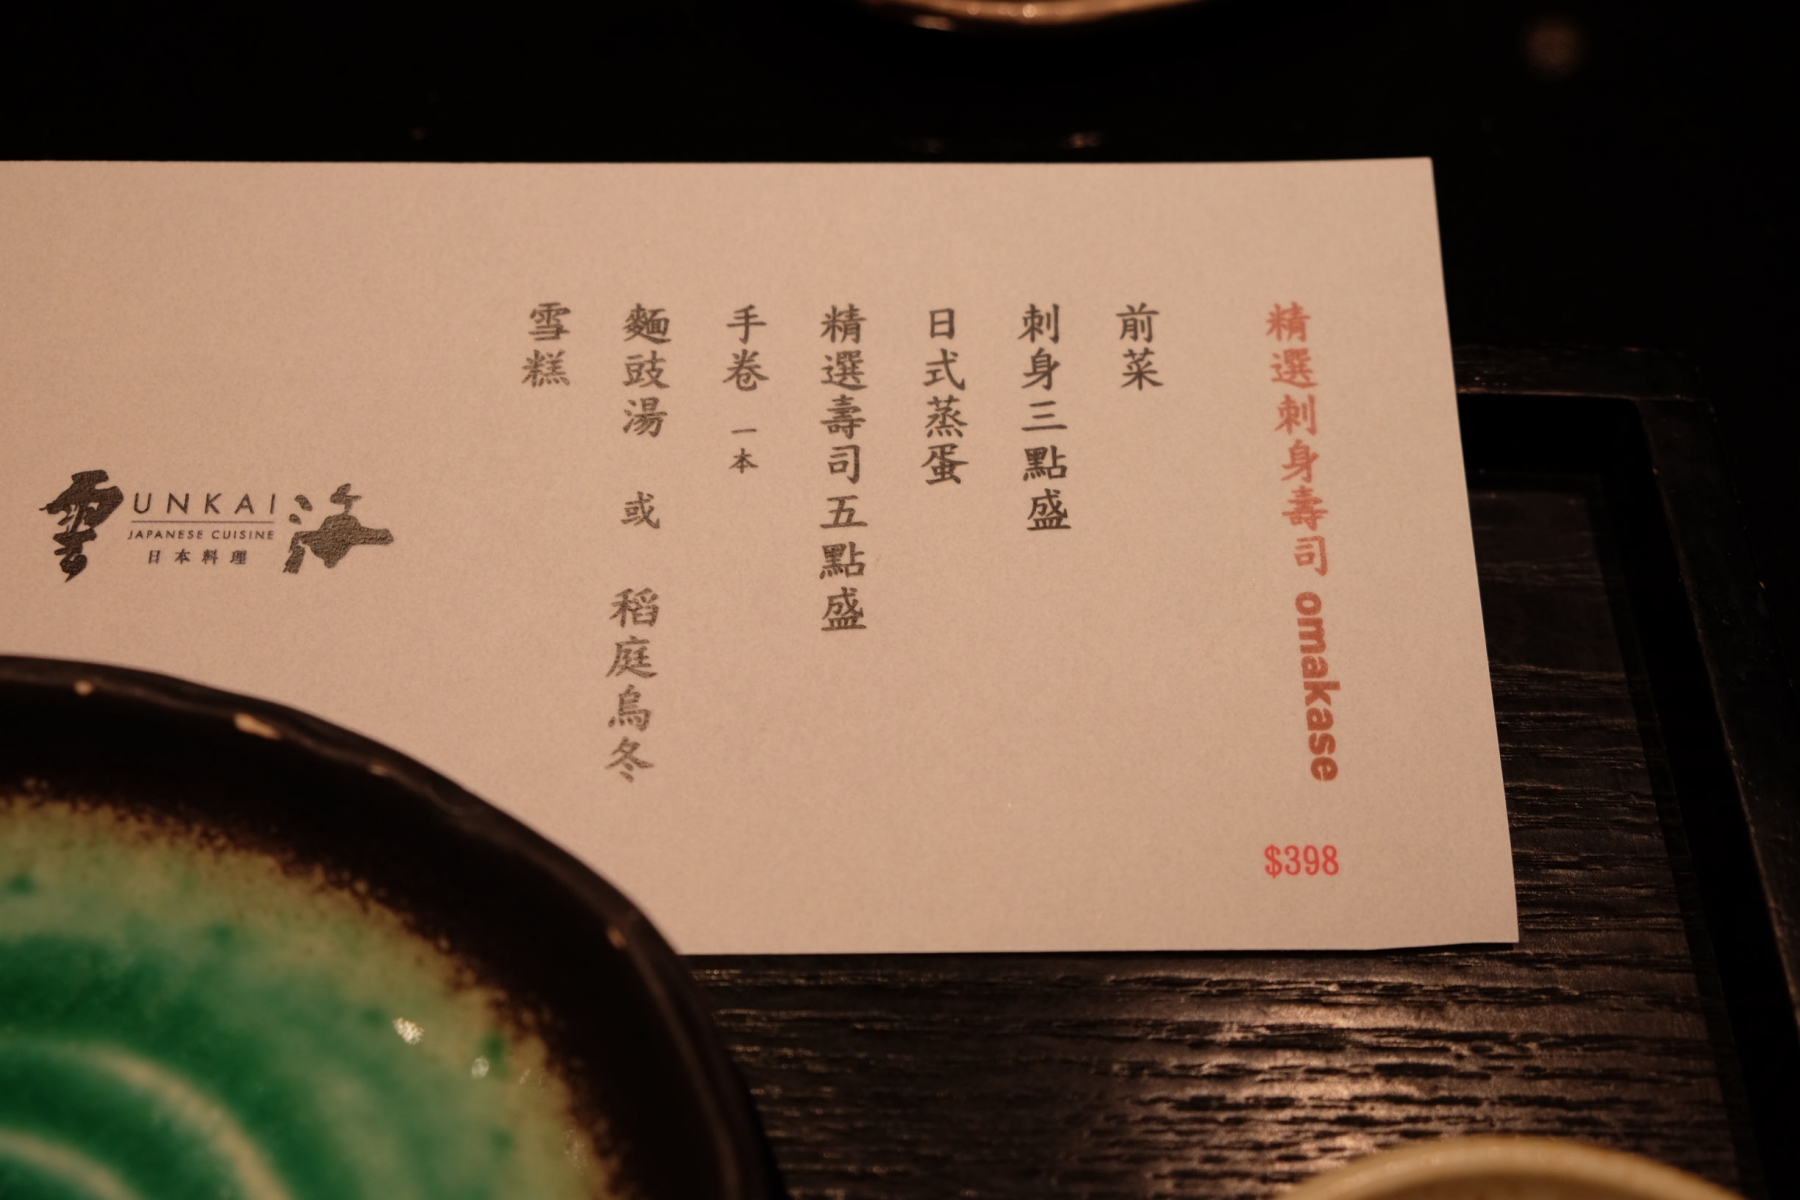 精選刺身壽司 omakase $398
前菜
刺身三點盛
日式蒸蛋
精選壽司五點盛
手卷 一本
麵豉湯 或 稻庭烏冬
雪糕
雲 UNKAI 海
JAPANESE CUISINE
日本料理